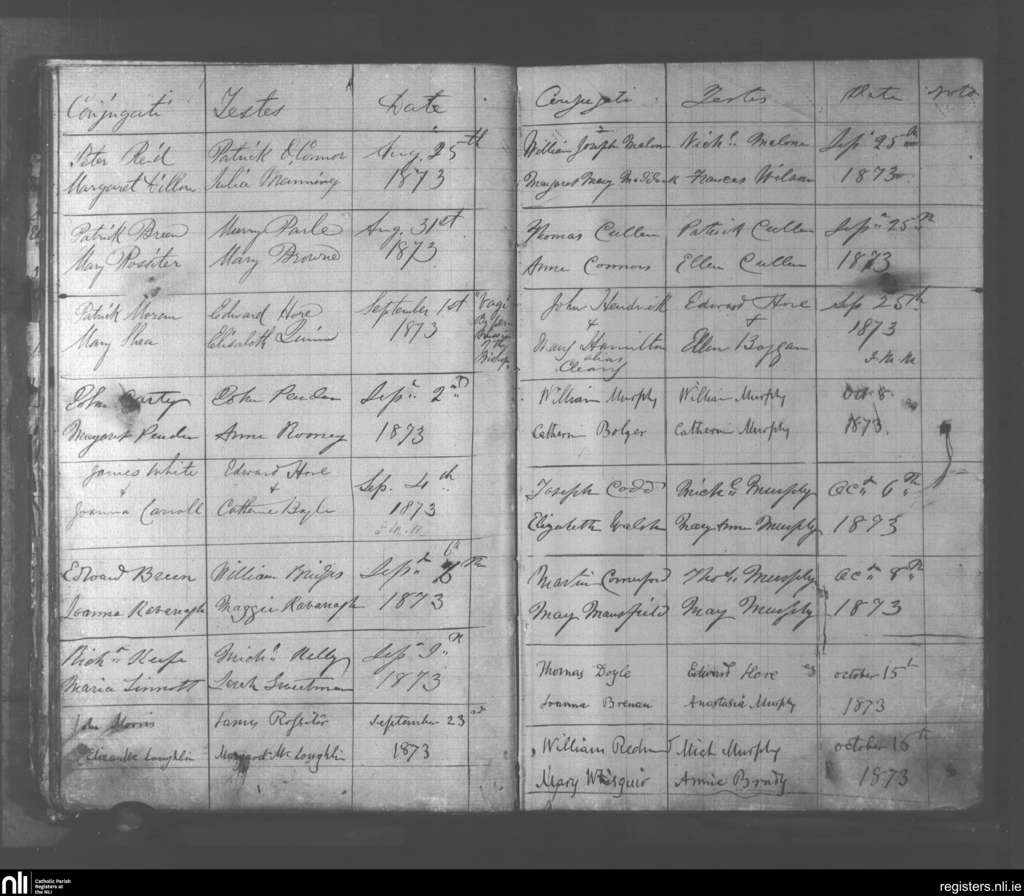 Conjugati Testes Date
Peter Reid Patrick O'Connor Aug. 25th
Margaret Dillon Julia Manning 1873
Patrick Breen Murry Parle Aug. 31st
Mary Rositer Mary Browne 1873
Patrick Moran Edward Hore September 1st
Mary Shea Elisabeth Quinn 1873
"Vagi"
By per
mission
of the
Bishop
John Carty John Penden Sep. 2nd
Margaret Penden Anne Rooney 1873
James White Edward Hore Sep. 4th
& &
Joanna Carroll Catherine Boyle 1873
Edward Breen William Bridges Sep. 6th
Joanna Kavanagh Maggie Kavanagh 1873
Rich. Keefe Mich. Kelly Sep. 9th
Maria Sinnott Sarah Sweetman 1873
John Morris James Rossitor September 23rd
Eliza Mc Loughlin Margaret Mc Loughlin 1873
Conjugati Testes Date Nota
William Joseph Malone Nich. Malone Sep. 25th
Margaret Mary Maddock Frances Wilson 1873
Thomas Cullen Patrick Cullen Sep. 25th
Anne Connors Ellen Cullen 1873
John Hendrick Edward Hore Sep 25th
& &
1873
Hamilton Ellen Boggan
alias
Cleary
J. M. M
William Murphy William Murphy Oct. 8
Catherin Bolger Catherin Murphy 1873
Joseph Codd Mich. Murphy Oct. 6th
Elizabeth Walsh Mary Anne Murphy 1873
Martin Comerford Thos. Murphy Oct. 8th
Mary Mansfield Mary Murphy 1873
Thomas Doyle Edward Hore october 15th
Joanna Brenan Anastasia Murphy 1873
William Redmond Mich Murphy october 16th
Mary Annie Brady 1873
nli Catholic Parish
Registers at
the NLI
registers.nli.ie